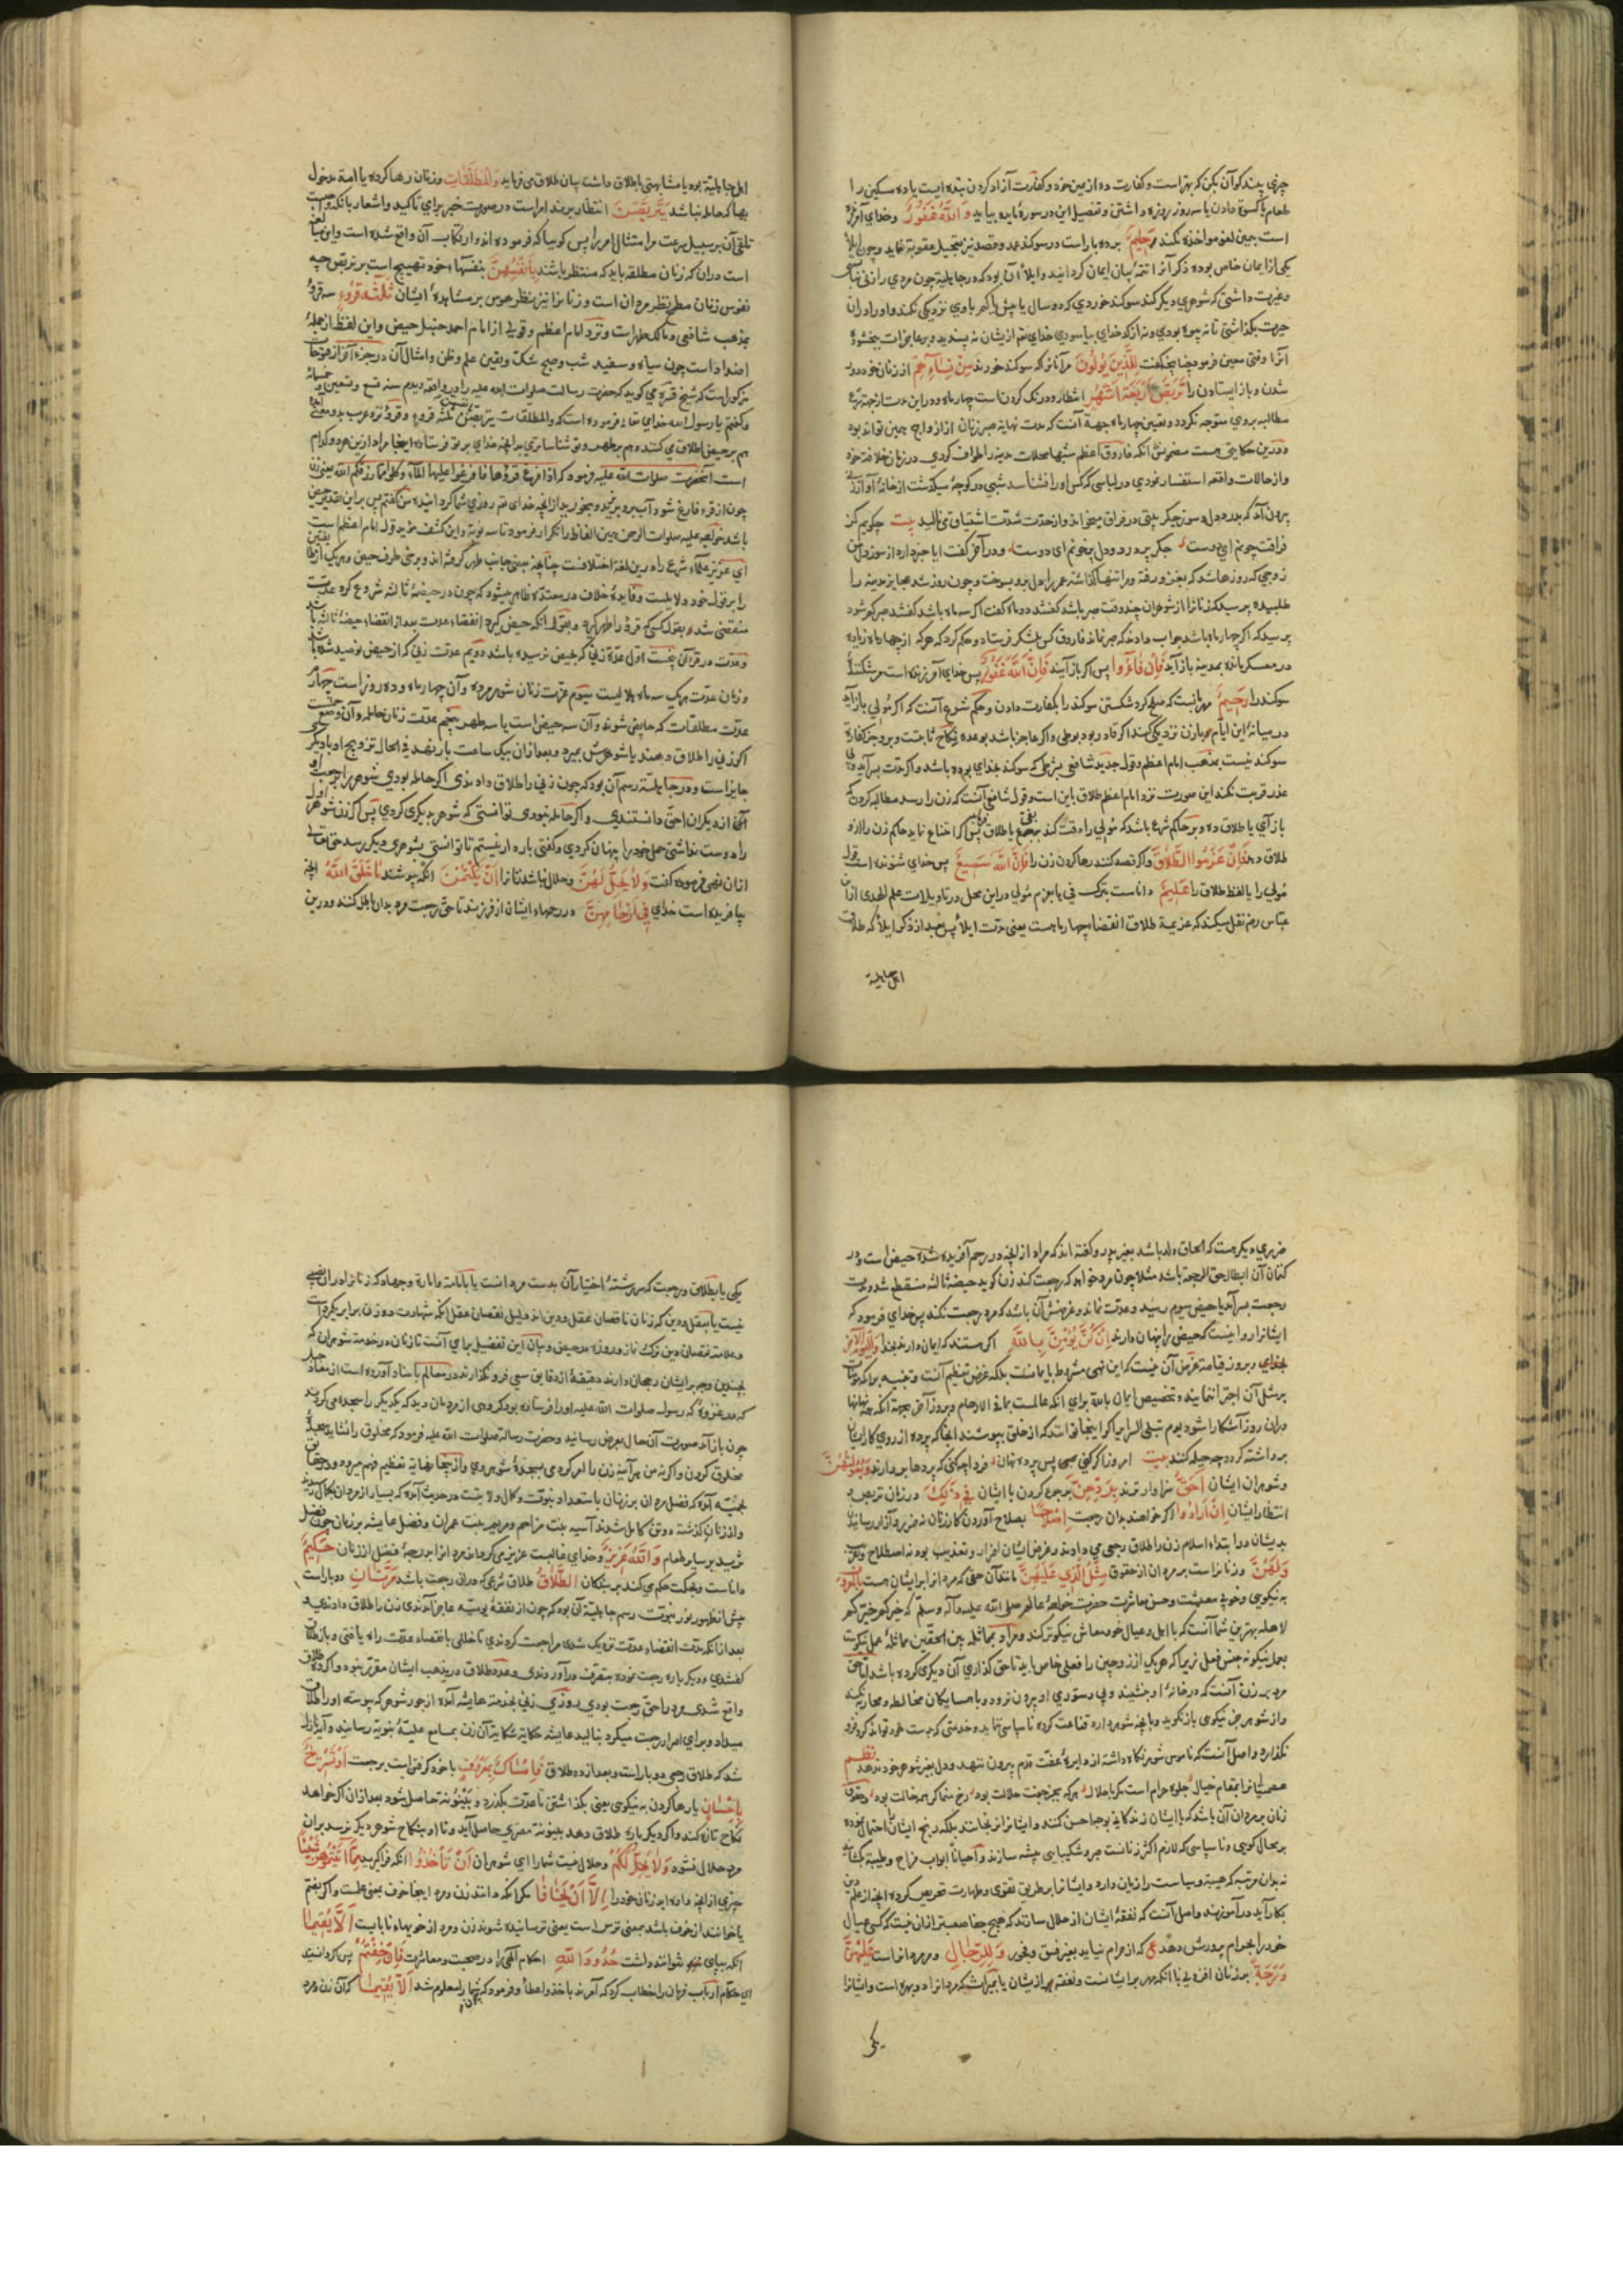 چیزی بیند کو آن بکن که بهتر است و کفارت ده از یمین خود و کفارت آزاد کردن بنده ایست یا ده مسکین را
طعام یا کسوة دادن یا سه روز روزه داشتن و تفصیل این در سورهٔ مایده بیاید وَاللَّهُ غَفُورٌ و خدای آمرزنده
است بیمین لغو مواخذه نکند حَلِیمٌ برده بار است در سوکند عمد و قصد نیز بتعجیل عقوبة ننماید و چون ایلا
یکی از ایمان خاص بوده ذکر آنرا تتمهٔ بیان ایمان کردانید و ایلا آن بود که در جاهلیة چون مردی را زنی
و غیرت داشتی که شوهری دیکر کند سوکند خوردی که دو سال یا بیش یا کمتر با وی نزدیکی نکند و او را در ان
حیرت بکذاشتی تا نه بیوه بودی و نه از کدخدای بیاسودی خدای تعـ از یشان نه پسندید و بر عاجزات ببخشود
آنرا وقتی معین فرمود چنانچه کفت لِلَّذِینَ یُؤْلُونَ مر آنانرا که سوکند خورند مِنْ نِسَائِهِمْ از زنان خود دور
شدن و باز ایستادن را تَرَبُّصُ أَرْبَعَةِ أَشْهُرٍ انتظار و درنک کردن است چهار ماه و در این مدت از جهة
مطالبه بروی متوجه نکردد و تعیین چهار ماه جهة آنست که مدت نهایة صبر زنان از ازواج همین تواند بود
و درین حکایتی هست مضمونش آنکه فاروق اعظم شبها محلات مدینه را طواف کردی در زمان خلافت خود
و از حالات واقعه استفسار نمودی در لباسی که کس او را نشناسد شبی در کوچهٔ میکذشت از خانهٔ آواز زنی
بیرون آمد که بدرد دل و سوز جکر بیتی در فراق میخواند و از حدّت شدّت اشتیاق می نالید بیت چکویم کز
فراقت چونم ای دوست جکر پر درد و دل پر خونم ای دوست و در آخر کفت ایا خبر دارد از سوز دل من
زوجی که روزها شد که بغزو رفته و مرا تنها کذاشته عمر را دل برو بسوخت و چون روز شد عجایز مدینه را
طلبیده پرسید که زنانرا از شوهران چند وقت صبر باشد کفتند دو ماه کفت اکر سه ماه باشد کفتند صبر کم شود
پرسید که اکر چهار ماه باشد جواب دادند که صبر نماند فاروق کس بلشکر فرستاد و حکم کرد که هر که از چهار ماه زیاده
در معسکر مانده بمدینه باز آید فَإِنْ فَاءُوا پس اکر باز آیند فَإِنَّ اللَّهَ غَفُورٌ پس خدای آمرزنده است مر شکنندهٔ
سوکند را رَحِیمٌ مهربانست که صلح کرد شکستن سوکند را بکفارت دادن و حکم شرع آنست که اکر مولی باز آید
در میانهٔ این ایام و با زن نزدیکی کند اکر قادر بود بوطی و اکر عاجز باشد بوعده نکاح ثابتست و برو جز کفارة
سوکند نیست بمذهب امام اعظم و قول جدید شافعی بشرطی که سوکند بخدای بوده باشد و اکر مدّت بسر آید و بی
عذر قربت نکند این صورت نزد امام اعظم طلاق باین است و قول شافعی آنست که زن را رسد مطالبه کردن که
باز آی یا طلاق ده و بر حاکم شرع باشد که مولی را دقت کند یا طلاق پس اکر امتناع نماید حاکم زن را از او
طلاق دهد فَإِنْ عَزَمُوا الطَّلَاقَ و اکر قصد کنند رها کردن زن را فَإِنَّ اللَّهَ سَمِیعٌ پس خدای شنونده است قول
مولی را یا لفظ طلاق را عَلِیمٌ داناست بترک فی یا بعزم مولی در این محل و در تاویلات علم الهدی از ابن
عبّاس رضـ نقل میکند که عزیمة طلاق انقضاء چهار ماهست یعنی مدّت ایلا پس بعد از ذکر ایلا که طلاق
اهل جاهلیة
اهل جاهلیة بود یا مشابهتی با طلاق داشت بیان طلاق می فرماید وَالْمُطَلَّقَاتُ و زنان رها کرده یا امة مدخول
بها که حامله نباشد یَتَرَبَّصْنَ انتظار برند امر است در صورت خبر برای تاکید و اشعار بانکه
تلقی آن بر سبیل سرعت مر امتثال امر را پس کوییا که فرموده اند و ارتکاب آن واقع شده است و این مبالغه
است در ان که زنان مطلقه باید که منتظر باشند بِأَنْفُسِهِنَّ بنفسهاء خود تهییج است بر تربّص چه
نفوس زنان مطرح نظر مردان است و زنانرا نیز منظر هوس بر مشاهدهٔ ایشان ثَلٰثَةَ قُرُوءٍ سه قروء
بمذهب شافعی و مالک طهر است و نزد امام اعظم و قولی از امام احمد حنبل حیض و این لفظ از جملهٔ
اضداد است چون سیاه و سفید شب و صبح شک و یقین علم و ظن و امثال آن در جزء آخر از فتوحات
مذکور است که شیخ قدّس سرّه می کوید که حضرت رسالت صلوات الله علیه را در واقعه دیدم سنه تسع و تسعین و خمسمائة
و کفتم یا رسول الله خدای تعالی فرموده است که والمطلقات یتربصن بانفسهن ثلثة قروء و قرء نزد عرب بدو معنی آمده
هم بر حیض اطلاق می کنند هم بر طهر و تو شناساتری بدانچه خدای بر تو فرستاد اینجا مراد ازین هر دو کدام
است آنحضرت صلوات الله علیه فرمود که اذا فرغ قروءها فافرغوا علیها الماء وکلوا مما رزقکم الله یعنی زن
چون از قرء فارغ شود آب برو بریزید و بخورید از انچه خدای تعـ روزی شما کردانیده من کفتم پس بر این تقدیر حیض
باشد خواجه علیه صلوات الرحمن همین الفاظ را تکرار فرمود تا سه نوبة و این کشف مؤید قول امام اعظم است
ای عزیز علماء شرع را درین لغة اختلافست چنانچه بعضی جانب طهر کرفته اند و برخی طرف حیض و هر یک ازین
را بر قول خود دلایلست و فایدهٔ خلاف در معتدّه ظاهر میشود که چون در حیضهٔ ثالثه شروع کرد عدّت
منقضی شد بقول کسی که قرء را طهر کیرد و بقول انکه حیض کیرد انقضاء عدت بعد از انقضاء حیضهٔ ثالثه باشد
و عدّت در قرآن پنجست اول عدّة زنی که بحیض نرسیده باشد دویم عدّت زنی که از حیض نومید شده باشد
و زنان عدّت هر یک سه ماه هلالیست سیوم عدّت زنان شوهر مرده و آن چهار ماه و ده روز است چهارم
عدّت مطلقات که حایض شوند و آن سه حیض است یا سه طهر پنجم عدّت زنان حامله و آن وضع حملست
اکر زنی را طلاق دهند یا شوهرش بمیرد و بعد از ان بیک ساعت بار نهد فی الحال تزویج او با دیکری
جایز است و در جاهلیّة رسم آن بود که چون زنی را طلاق دادندی اکر حامله بودی شوهر بمراجعت او
از دیکران احقّ دانستندی و اکر حامله نبودی توانستی که شوهر دیکری کردی پس اکر زن شوهر اول
را دوست نداشتی حمل خود را پنهان کردی و کفتی بار دار نیستم تا توانستی بشوهری دیکر رسد حق تعالی
از ان نهی فرموده کفت وَلَا یَحِلُّ لَهُنَّ و حلال نباشد زنانرا أَنْ یَکْتُمْنَ انکه بپوشند مَا خَلَقَ اللَّهُ انچه
بیافریده است خدای فِی أَرْحَامِهِنَّ در رحمهاء ایشان از فرزند تا حق رجعت مرد بدان باطل کنند و درین
ضرری دیکر هست که الحاق ولد باشد بغیر پدر و کفته اند که مراد از انچه در رحم آفریده شده حیض است و در
کتمان آن ابطال حق الرجعة باشد مثلا چون مرد خواهد که رجعت کند زن کوید حیضهٔ ثالثه منقطع شد و مدت
رجعت بسر آمد یا حیض سیوم رسید و عدّت نماند و غرضش آن باشد که مرد رجعت نکند پس خدای فرمود که
ایشانرا روا نیست که حیض را پنهان دارند إِنْ کُنَّ یُؤْمِنَّ بِاللَّهِ اکر هستند که ایمان دارند بخدا وَالْیَوْمِ الْآخِرِ
بخدای و بروز قیامة غرض آن نیست که این نهی مشروط بایمانست بلکه غرض تعظیم آنست و تنبیه برانکه مومنات
بر مثل آن اجترا ننمایند و تخصیص ایمان بالله برای انکه عالمست بما فی الارحام و بروز آخر بجهة انکه همه نهانها
در ان روز آشکارا شود یوم تبلی السرائر اکر اینجا توانند که از خلق بپوشند انجا که پرده از روی کارها
برداشته کردد چه حیله کنند بیت امروز اکر کنی پس پرده نهان فردا چه کنی که پردها بردارند وَبُعُولَتُهُنَّ
و شوهران ایشان أَحَقُّ سزاوارترند بِرَدِّهِنَّ برجوع کردن با ایشان فِی ذَلِکَ در زمان تربص و
انتظار ایشان إِنْ أَرَادُوا اکر خواهند بدان رجعت إِصْلَاحًا بصلاح آوردن کار زنان نه ضرر و آزار رسانیدن
بدیشان در ابتداء اسلام زن را طلاق رجعی می دادند و غرض ایشان اضرار و تعذیب بود نه اصطلاح
وَلَهُنَّ و زنانرا است بر مردان از حقوق مِثْلُ الَّذِی عَلَیْهِنَّ مانند آن حقی که مردانرا بر ایشان هست بِالْمَعْرُوفِ
به نیکویی و خوبی معیشت و حسن معاشرت حضرت خواجهٔ عالم صلی الله علیه و آله و سلّم که خیرکم خیرکم
لاهله بهترین شما آنست که با اهل و عیال خود معاش نیکوتر کند و مراد بمماثله بین الحقین مماثلهٔ عمل نیکوست
بعمل نیکو نه جنس فعل زیرا که هر یک از زوجین را فعلی خاص باید تا حق کذاری آن دیکری کرده باشد امّا حق
مرد بر زن آنست که در خانهٔ او بنشیند و بی دستوری او بیرون نرود و با همسایکان مخالطه و محاربه نکند
و از شوهر جز نیکوی باز نکوید و بانچه شوهر دارد قناعت کرده ناسپاسی ننماید و خدمتی که بدست خود تواند کرد فرو
نکذارد و اصل آنست که ناموس شوهر نکاه داشته از دایرهٔ عفت قدم بیرون ننهد و دل بغیر شوهر خود ندهد نظم
زنان بر مردان آن باشد که با ایشان زندکانی بوجه احسن کنند و ایشانرا نرنجانند بلکه رنج ایشان احتمال نموده
بر محال کویی و ناسپاسی که لازم اکثر زنانست صبر و شکیبایی پیشه سازند و احیانا ابواب مزاح و طیبت کشاده
نه بدان مرتبه که هیبة و سیاست را زیان دارد و ایشانرا بر طریق تقوی و طهارت تحریص کرده انچه از علم دین
بکار آید در آموزند و اصل آنست که نفقهٔ ایشان از حلال سازند که هیچ جفا صعبتر از ان نیست که کسی عیال
خود را بحرام پرورش دهد ع که از حرام نیاید بغیر فسق و فجور وَلِلرِّجَالِ و مر مردانرا است عَلَیْهِنَّ
دَرَجَةٌ بر زنان افزونی با انکه مهر بر ایشانست و نفقه هم از یشان یا بمیراث که مردانرا دو بهره است و ایشانرا
یکی
یکی یا بطلاق و رجعت که سر رشتهٔ اختیار آن بدست مردانست یا بامامت و امارة و جهاد که زنانرا در ان نصیبی
نیست یا بعقل و دین که زنان ناقصان عقل و دین اند و دلیل نقصان عقل انکه شهادت دو زن برابر یکمرد است
و علامت نقصان دین ترک نماز و روزه در حیض و بیان این تفضیل برای آنست تا زنان در خدمت شوهران که
بچندین وجه بر ایشان رجحان دارند دقیقهٔ از دقایق سعی فرو نکذارند در معالم باسناد آورده است از معاذ جبل
که در غزوهٔ که رسول صلوات الله علیه او را فرستاده بود کروهی از مردمان دید که یکدیکر را سجده می کردند
چون باز آمد صورت آن حال بعرض رسانید و حضرت رسالة صلوات الله علیه فرمود که مخلوق را نشاید سجدهٔ
مخلوق کردن و اکر نه من هر آینه زن را امر کردمی بسجدهٔ شوهر وی و از ینجا نهایة تعظیم فهم میرود و در حقایق
نجمیّه آمده که فضل مردان بر زنان باستعداد نبوّت و کمال ولایتست در حدیث آمده که بسیار از مردان بکمال رسیدند
و از زنان کذشته دو تن کامل شدند آسیه بنت مزاحم و مریم بنت عمران و فضل عایشه بر زنان چون فضل
ثریدست بر سایر طعام وَاللَّهُ عَزِیزٌ و خدای غالبست عزیز می کرداند مردانرا بدرجهٔ فضل از زنان حَکِیمٌ
داناست و بحکمت حکم می کند بر بندکان الطَّلَاقُ طلاق شرعی که در انی رجعت باشد مَرَّتَانِ دو بار است
پیش از ظهور نور نبوّت رسم جاهلیّة آن بود که چون از نفقهٔ یومیّه عاجز آمدندی زن را طلاق دادندی و
بعد از انکه مدّت انقضاء عدّت نزدیک شدی مراجعت کردندی تا خللی بانقضاء عدّت راه یافتی و باز طلاق
کفتندی و دیکر باره رجعت نموده بتصرّف در آوردندی و عدد طلاق در مذهب ایشان مقرّر نبود و اکر ده طلاق
واقع شدی مرد را حق رجعت بودی روزی زنی بخدمة عایشه آمد از جور شوهر که پیوسته او را طلاق
میداد و برای اضرار رجعت میکرد بنالید عایشه حکایة شکایة آن زن بمسامع علیّهٔ نبویّه رسانید و آیة نازل
شد که طلاق رجعی دو بار است و بعد از دو طلاق فَإِمْسَاکٌ بِمَعْرُوفٍ با خود کرفتن است برجعت أَوْ تَسْرِیحٌ
بِإِحْسَانٍ یا رها کردن به نیکویی یعنی بکذاشتن تا عدّت بکذرد و بینونة حاصل شود بعد از ان اکر خواهد
نکاح تازه کند و اکر دیکر باره طلاق دهد بینونة مغری حاصل آید و تا او بنکاح شوهر دیکر نرسد بر ان
مرد حلال نشود وَلَا یَحِلُّ لَکُمْ و حلال نیست شما را ای شوهران أَنْ تَأْخُذُوا انکه فرا کیرید مِمَّا آتَیْتُمُوهُنَّ شَیْئًا
چیزی از انچه داده اید زنان خود را إِلَّا أَنْ یَخَافَا مکر انکه دانند زن و مرد اینجا خوف بمعنی علمست و اکر بضم
یا خوانند از خوف باشد بمعنی ترس است یعنی ترسانیده شوند زن و مرد از خویهاء نابایست أَلَّا یُقِیمَا
انکه بپای نتوانند داشت حُدُودَ اللَّهِ احکام الهی را در صحبت و معاشرت فَإِنْ خِفْتُمْ پس اکر دانید
ای حکام ارباب فرمان را خطاب کرد که آمرند باخذ و اعطا و فرمود که چون شما را معلوم شد أَلَّا یُقِیمَا که آن زن و مرد